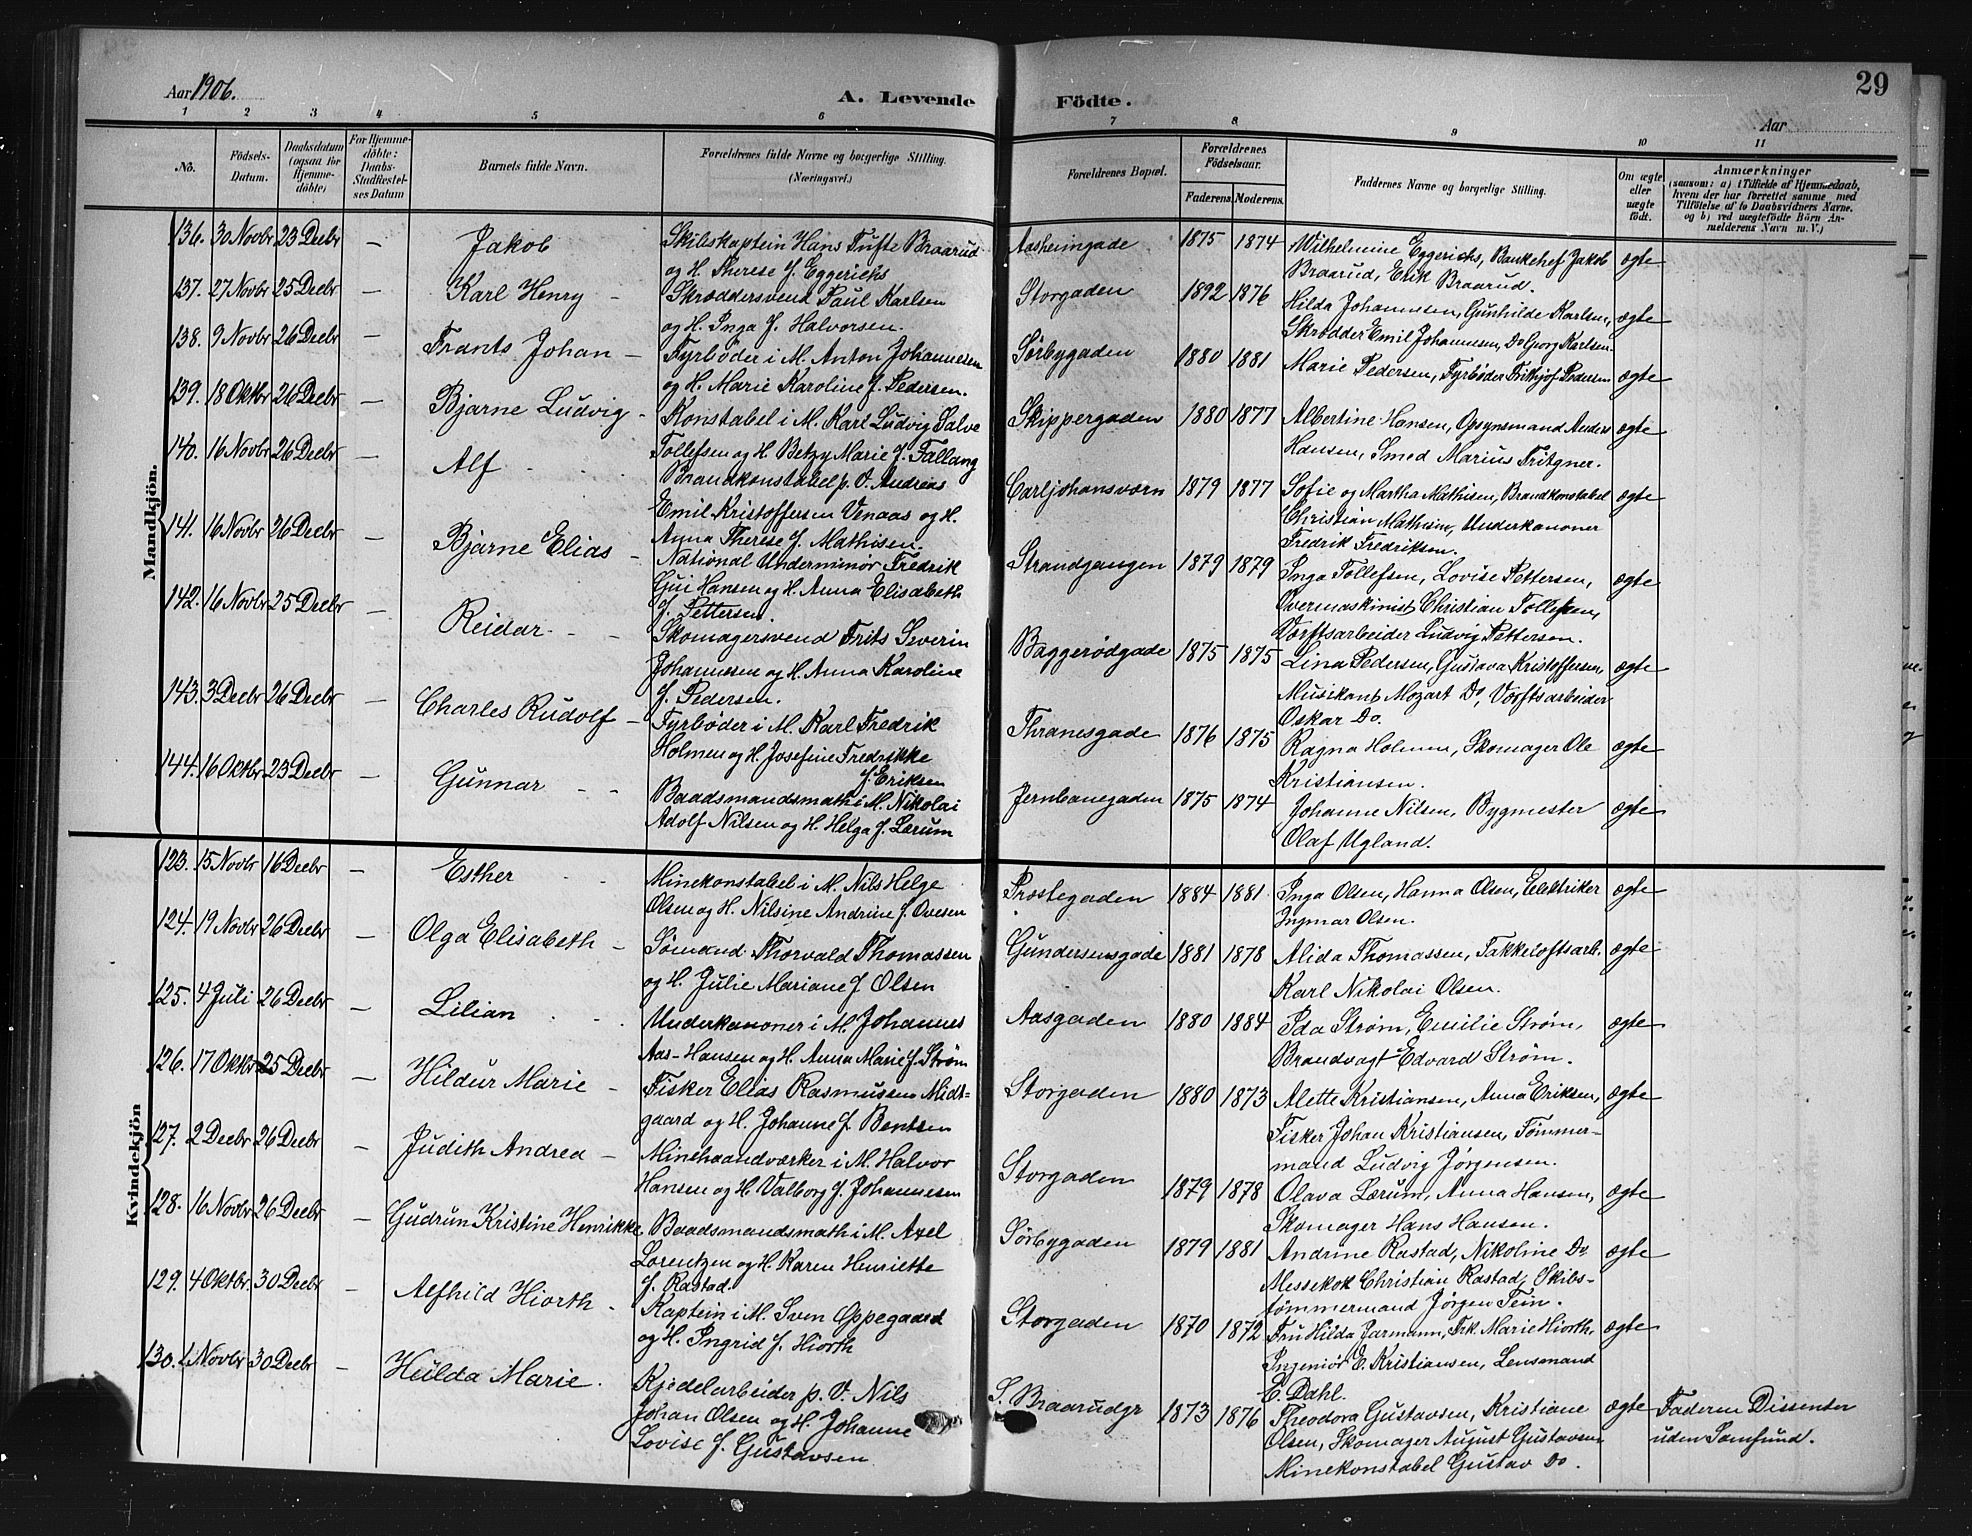 29
Aar 1906. A. Levende Födte. Aar
1 2 3 4 5 6 7 8 9 10 11
No. Födsels-Datum. Daabsdatum (ogsaa for Hjemmedöbte) For Hjemmedöbte: Daabs-Stadfestelses Datum Barnets fulde Navn. Forældrenes fulde Navne og borgerlige Stilling. (Næringsvei.) Forældrenes Bopæl. Forældrenes Födselsaar. Faderens Moderens. Faddernes Navne og borgerlige Stilling. Om ægte eller uægte födt. Anmærkninger (saasom: a) i Tilfælde af Hjemmedaab, hvem der har forrettet samme med Tilföielse af to Daabsvidners Navne. og b) ved uægtefödte Börn Anmelderens Navn m. V.)
Mandkjön.
136. 30 Novbr 23 Decbr — Jakob Skibskaptein Hans Tufte Braarud Aasheimgade 1875 1874 Wilhelmine Eggerichs, Bankchef Jakob ægte
og H. Therese f. Eggerichs Braarud, Erik Braarud.
137. 27 Novbr 25 Decbr — Karl Henry – Skræddersvend Paul Karlsen Storgaden 1892 1876 Hilda Johannesen, Gunhilde Karlsen, ægte
og H. Inga f. Halvorsen. Skrædder Emil Johannesen, Do Georg Karlsen.
138. 9 Novbr 26 Decbr — Frants Johan – Fyrbøder i M. Anton Johannesen Sørbygaden 1880 1881 Marie Pedersen, Fyrbøder Frithjof Pedersen ægte
og H. Marie Karoline f. Pedersen.
139. 18 Oktbr 26 Decbr — Bjarne Ludvig – Konstabel i M. Karl Ludvig Salve Skippergaden 1880 1877 Albertine Hansen, Opsynsmand Anders ægte
Tollefsen og H. Betzy Marie f. Fallang Hansen, Smed Marius Fritzner.
140. 16 Novbr 26 Decbr — Alf Brandkonstabel p. V. Andreas Carljohansværn 1879 1877 Sofie og Martha Mathisen, Brandkonstabel ægte
Emil Kristoffersen Venaas og H. Christian Mathisen, Underkanoner
Anna Therese f. Mathisen. Fredrik Fredriksen.
141. 16 Novbr 26 Decbr — Bjarne Elias – National Underminør Fredrik Strandgangen 1879 1879 Inga Tollefsen, Lovise Pettersen, ægte
Gui Hansen og H. Anna Elisabeth Overmaskinist Christian Tollefsen,
f. Pettersen. Værftsarbeider Ludvig Pettersen.
142. 16 Novbr 25 Decbr — Reidar Skomagersvend Frits Severin Baggerødgade 1875 1875 Lina Pedersen, Gustava Kristoffersen, ægte
Johannesen og H. Anna Karoline Musikant Mozart Do, Værftsarbeider
f. Pedersen. Oskar Do.
143. 3 Decbr 26 Decbr — Charles Rudolf – Fyrbøder i M. Karl Fredrik Thranesgade 1876 1875 Ragna Holmen, Skomager Ole ægte
Holmen og H. Josefine Fredrikke Kristiansen.
f. Eriksen
144. 16 Oktbr 23 Decbr — Gunnar Baadsmandsmath i M. Nikolai Jernbanegaden 1875 1874 Johanne Nilsen, Bygmester ægte
Adolf Nilsen og H. Helga f. Lærum Olaf Ugland.
Kvindekjön
123. 15 Novbr 16 Decbr — Esther Minekonstabel i M. Nils Helge Prostegaden 1884 1881 Inga Olsen, Hanna Olsen, Elektriker ægte
Olsen og H. Nilsine Andrine f. Ovesen Ingmar Olsen.
124. 19 Novbr 26 Decbr — Olga Elisabeth – Sømand Thorvald Thomassen Gundersensgade 1881 1878 Alida Thomassen, Takkeloftsarb. ægte
og H. Julie Mariane f. Olsen Karl Nikolai Olsen.
125. 4 Juli 26 Decbr — Lilian Underkanoner i M. Johannes Aasgaden 1880 1884 Ida Strøm, Emilie Strøm, ægte
Aas-Hansen og H. Anna Marie f. Strøm Brandvagt Edvard Strøm.
126. 17 Oktbr 25 Decbr — Hildur Marie – Fisker Elias Rasmussen Midt- Storgaden 1880 1873 Alette Kristiansen, Anna Eriksen, ægte
gaard og H. Johanne f. Bentsen Fisker Johan Kristiansen, Tømmer-
mand Ludvig Jørgensen.
127. 2 Decbr 26 Decbr — Judith Andrea – Minehaandværker i M. Halvor Storgaden 1879 1878 Olava Lærum, Anna Hansen, ægte
Hansen og H. Valborg f. Johannesen Skomager Hans Hansen.
128. 16 Novbr 26 Decbr — Gudrun Kristine Henrikke Baadsmandsmath i M. Axel Sørbygaden 1879 1881 Andrine Rastad, Nikoline Do ægte
Lorentzen og H. Karen Henriette Messekok Christian Rastad, Skibs-
f. Rastad. tømmermand Jørgen Tein.
129. 4 Oktbr 30 Decbr — Alfhild Hiorth – Kaptein i M. Sven Oppegaard Storgaden 1870 1872 Fru Hilda Jarmann, Frk. Marie Hiorth, ægte
og H. Ingrid f. Hiorth Ingeniør E. Kristiansen, Lensmand
E. Dahl.
130. 1 Novbr 30 Decbr — Hulda Marie. Kjedelarbeider p. V. Nils S. Braarudgr 1873 1876 Theodora Gustavsen, Kristiane ægte Faderen Dissenter
Johan Olsen og H. Johanne Olsen, Skomager August Gustavsen uden Samfund.
Lovise f. Gustavsen Minekonstabel Gustav Do.